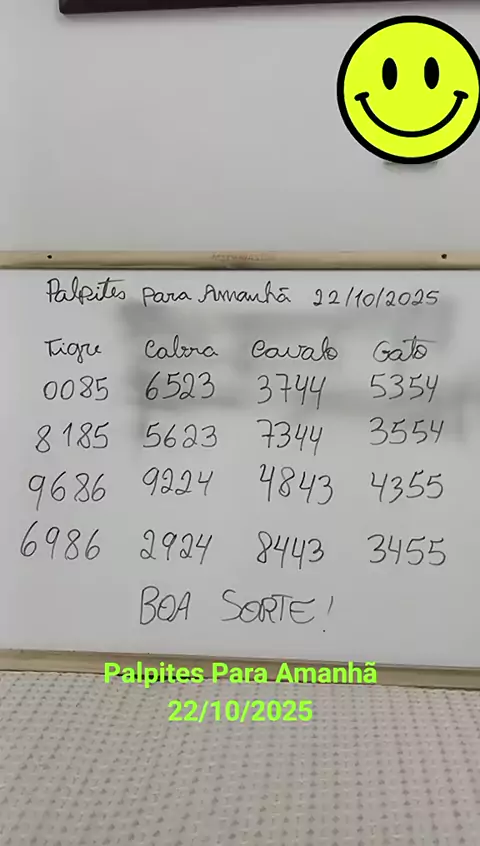 Palpites para Amanhã 22/10/2025
Tigre Cabra Cavalo Gato
0085 6523 3744 5354
8185 5623 7344 3554
9686 9224 4843 4355
6986 2924 8443 3455
BOA SORTE!
Palpites Para Amanhã
22/10/2025